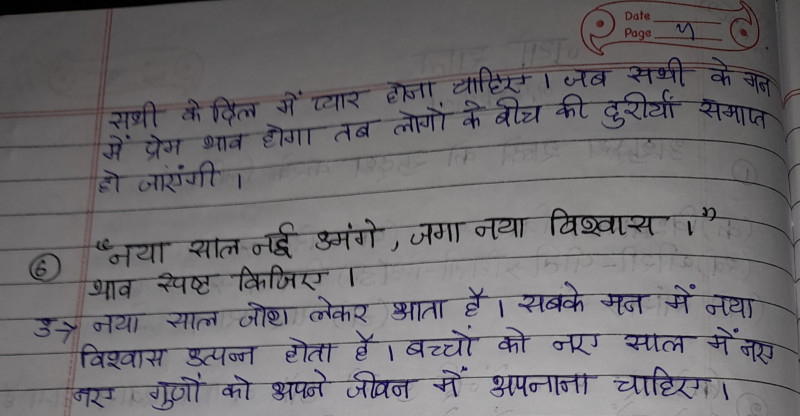 Date
Page 4
सभी के दिल में प्यार होना चाहिए । जब सभी के मन
में प्रेम भाव होगा तब लोगों के बीच की दुरीयाँ समाप्त
हो जाएंगी ।
⑥ "नया साल नई उमंगे , जगा नया विश्वास ।"
भाव स्पष्ट किजिए ।
उ→ नया साल जोश लेकर आता है । सबके मन में नया
विश्वास उत्पन्न होता है । बच्चों को नए साल में नए
नए गुणों को अपने जीवन में अपनाना चाहिए ।